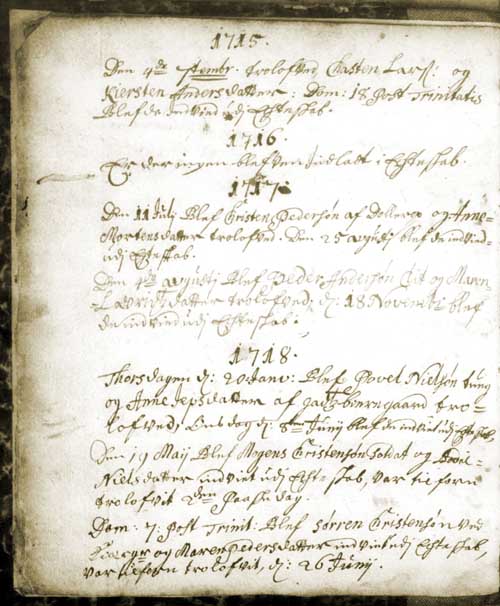 1715.
Den 4de 7tembr. trolofved Chasten Lars: og
Kiersten Andersdatter: Dom: 18 post Trinitatis
blef de indvied udj Echteskab.
1716.
Er der ingen blefven indladt i Echteskab.
1717.
Den 11 Julij blef Christen Pedersøn af og Anne
Mortensdatter trolofved. Den 25 augustj blef de indvied
udj Echteskab.
Den 4de augustj blef Peder Andersøn og Maren
Lauridsdatter trolofved, d: 18 Novembr blef
de indvied udj Echteskab.
1718.
Thorsdagen d: 20 Janv: blef Povel Nielsøn tung
og Anne Jepsdatter af gaard tro-
lofved, Onsdag d: 8de Junij blef de indviet udj Echteskab
Den 19 Maij blef Mogens Christensøn Soldat og Bodil
Nielsdatter indviet udj Echteskab, var tilforn
trolofvit 2den Paaske dag.
Dom: 7: post Trinit: blef Sørren Christensøn ved
og Maren Pedersdatter indviet udj Echteskab,
var tilforn trolofvit, d: 26 Junij.